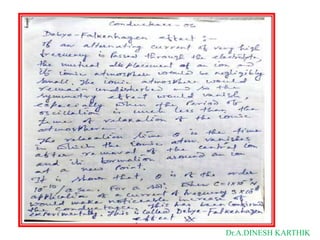 Conductance - 06
Debye-Falkenhagen effect :-
If an alternating current of very high
frequency is passed through the electrolyte,
the mutual displacement of an ion and
its ionic atmosphere would be negligibly
small. The ionic atmosphere would
remain undisturbed and so the
symmetry effect would vanish,
especially when the period of
oscillation is much less than the
time of relaxation of the ionic
atmosphere.
The relaxation time θ is the time
in which the ionic atom vanishes
after removal of the central ion
and its formation around an ion
at a new point.
It is shown that, θ is of the order
application of a current of frequency
would make noticeable increase in
the conductance, this has been confirmed
experimentally. This is called Debye-Falkenhagen
effect
Dr.A.DINESH KARTHIK